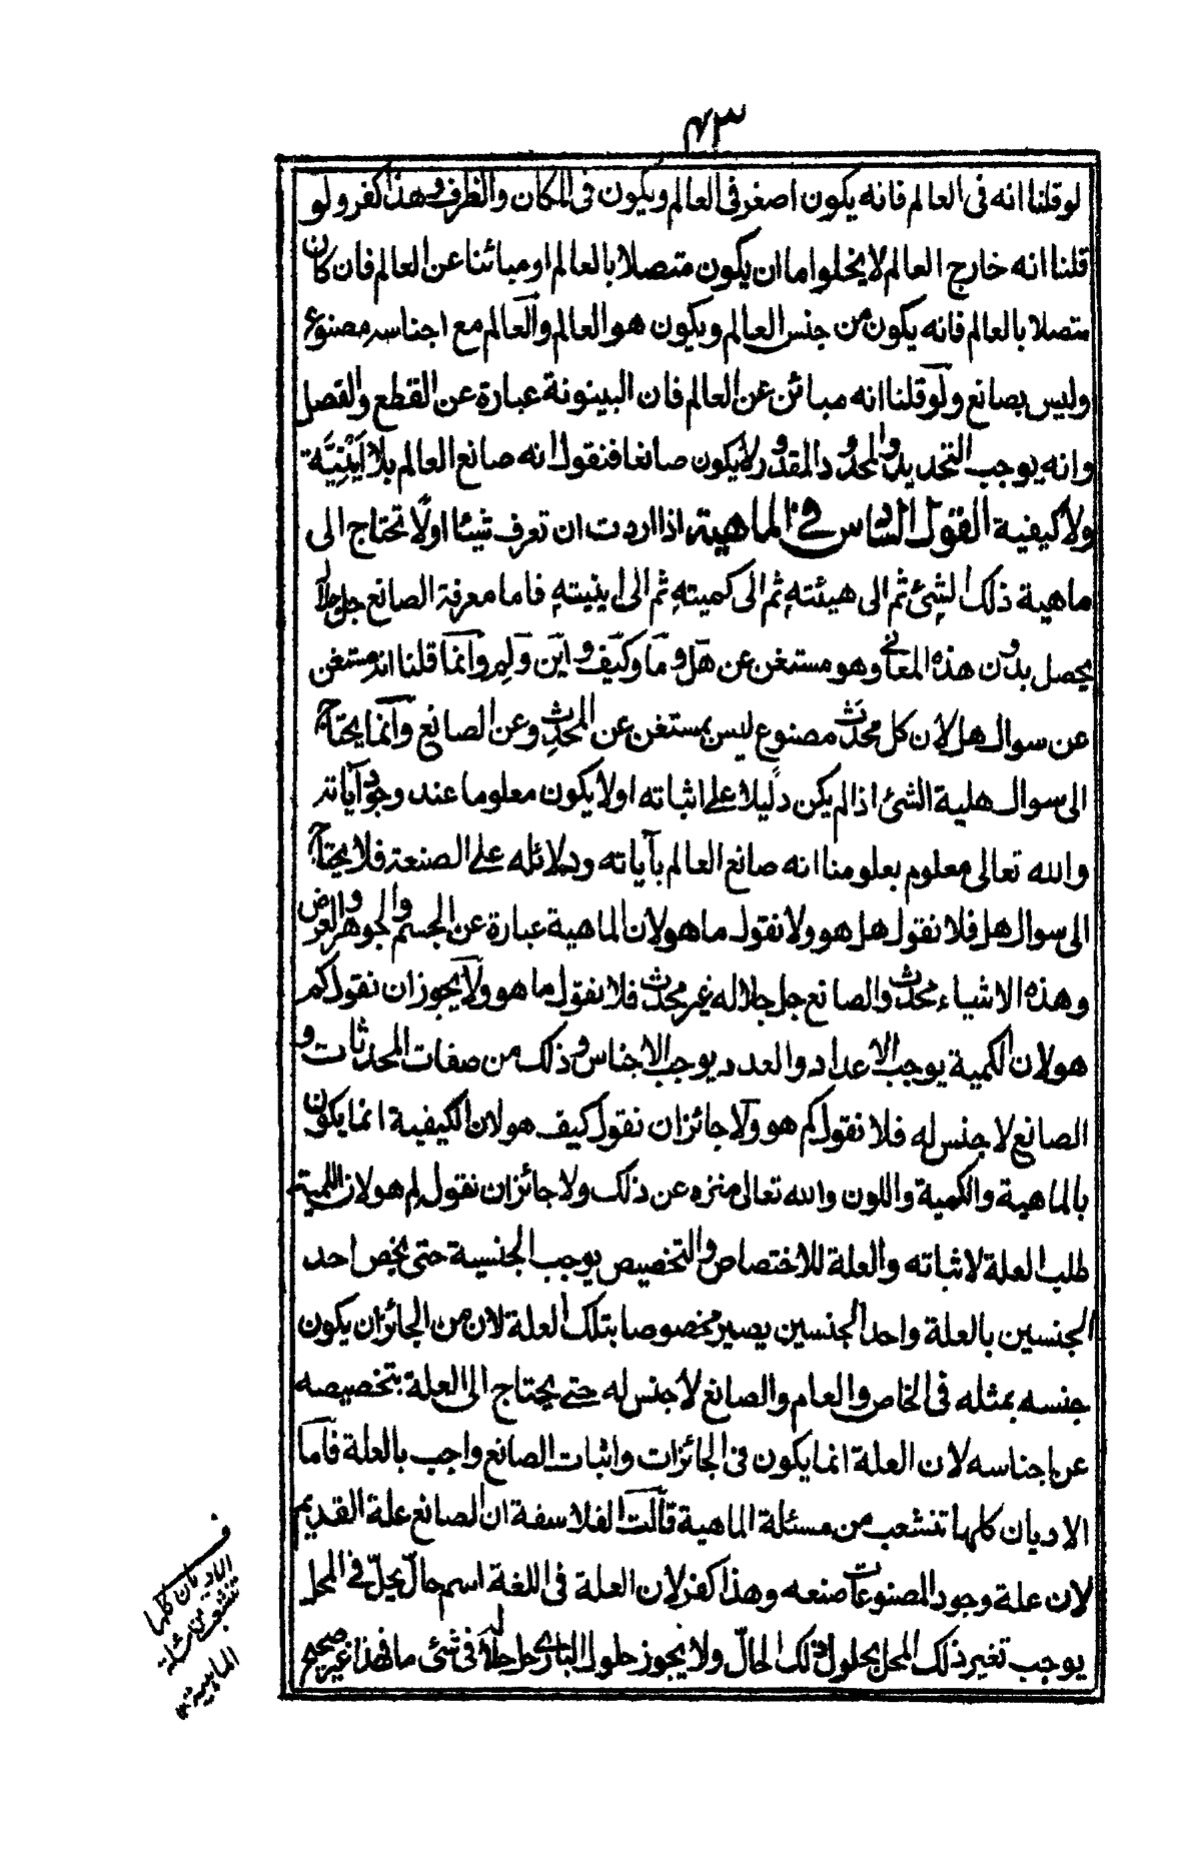 ٤٣
لو قلنا انه فى العالم فانه يكون اصغر فى العالم ويكون فى المكان والظرف وهذا كفر ولو
قلنا انه خارج العالم لا يخلوا ما ان يكون متصلا بالعالم او مبائنا عن العالم فان كان
متصلا بالعالم فانه يكون من جنس العالم ويكون هو العالم والعالم مع اجناسه مصنوع
وليس بصانع ولو قلنا انه مبائن عن العالم فان البينونة عبارة عن القطع والفصل
وانه يوجب التحديد والمحدود والمقدور لا يكون صانعا فنقول انه صانع العالم بلا اَيْنِيَّة
ولا كيفية القول السادس فى الماهية اذا اردت ان تعرف شيئا اولًا تحتاج الى
ماهية ذلك الشئ ثم الى هيئته ثم الى كميته ثم الى اينيته فاما معرفة الصانع جل جلاله
يحصل بدون هذه المعانى وهو مستغن عن هل وما وكيف واين ولم وانما قلنا انه مستغن
عن سوال هل لان كل محدَث مصنوع ليس بمستغن عن المحدِث وعن الصانع وانما يحتاج
الى سوال هلية الشئ اذا لم يكن دليلا على اثباته اولا يكون معلوما عند وجود آياته
والله تعالى معلوم بعلومنا انه صانع العالم بآياته ودلائله على الصنعة فلا يحتاج
الى سوال هل فلا نقول هل هو ولا نقول ما هو لان الماهية عبارة عن الجسم والجوهر والعرض
وهذه الاشياء محدث والصانع جل جلاله غير محدث فلا نقول ما هو ولا يجوز ان نقول كم
هو لان الكمية يوجب الاعداد والعدد يوجب الاجناس وذلك من صفات المحدثات و
الصانع لا جنس له فلا نقول كم هو ولا جائز ان نقول كيف هو لان الكيفية انما يكون
بالماهية والكمية واللون والله تعالى منزه عن ذلك ولا جائز ان نقول لم هو لان اللمية
طلب العلة لاثباته والعلة للاختصاص والتخصيص يوجب الجنسية حتى يخص احد
الجنسين بالعلة واحد الجنسين يصير مخصوصا بتلك العلة لان من الجائز ان يكون
جنسه بمثله فى الخاص والعام والصانع لا جنس له حتى يحتاج الى العلة بتخصيصه
عن اجناسه لان العلة انما يكون فى الجائزات واثبات الصانع واجب بالعلة فاما
الاديان كلها تنشعب من مسئلة الماهية قالت الفلاسفة ان الصانع علة القديم
لان علة وجود المصنوعات صنعه وهذا كفر لان العلة فى اللغة اسم حالّ يحلّ فى المحل
يوجب تغير ذلك المحل بحلول ذلك الحالّ ولا يجوز حلول البارى جل جلاله فى شئ ما فهذا غير صحيح
ف
الاديان كلها
تنشعب من مسئلة
الماهية